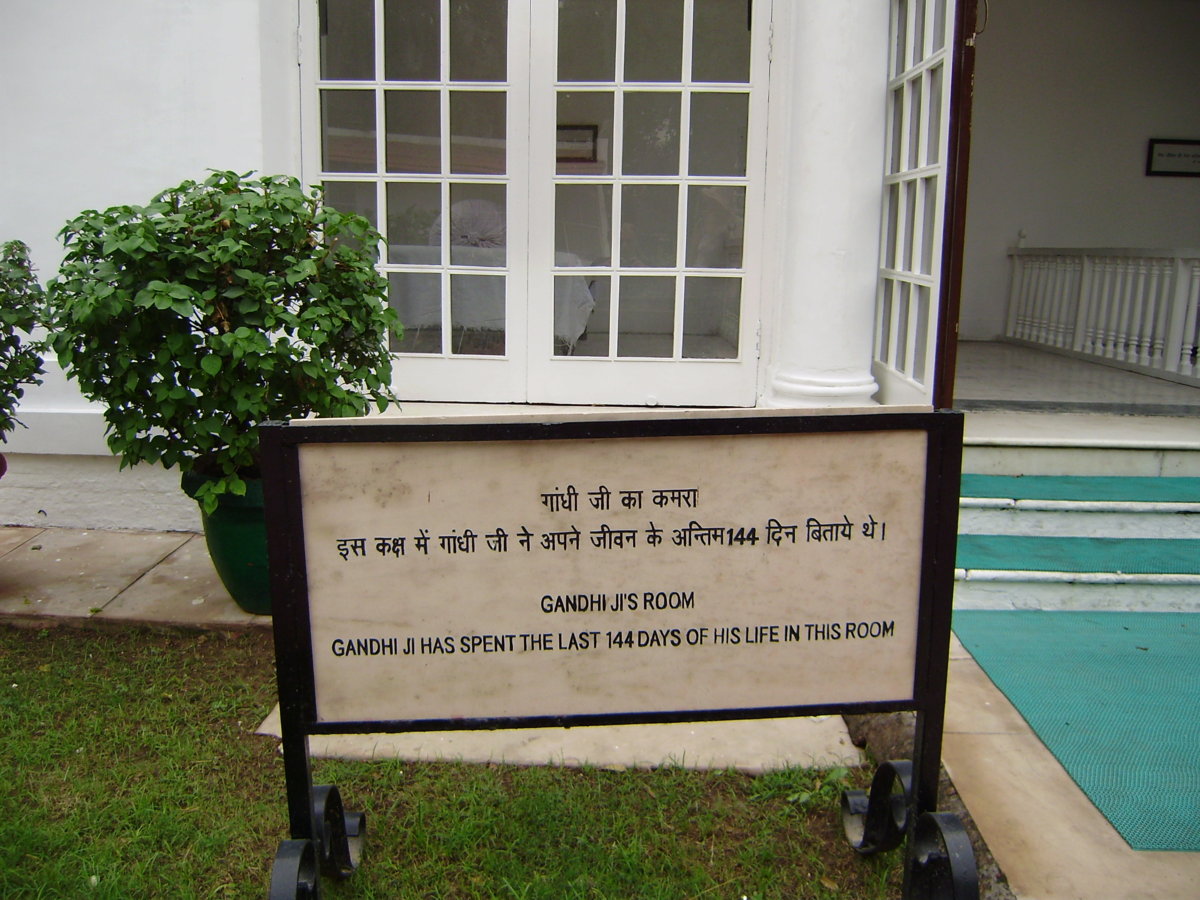 गांधी जी का कमरा
इस कक्ष में गांधी जी ने अपने जीवन के अन्तिम 144 दिन बिताये थे।
GANDHI JI'S ROOM
GANDHI JI HAS SPENT THE LAST 144 DAYS OF HIS LIFE IN THIS ROOM